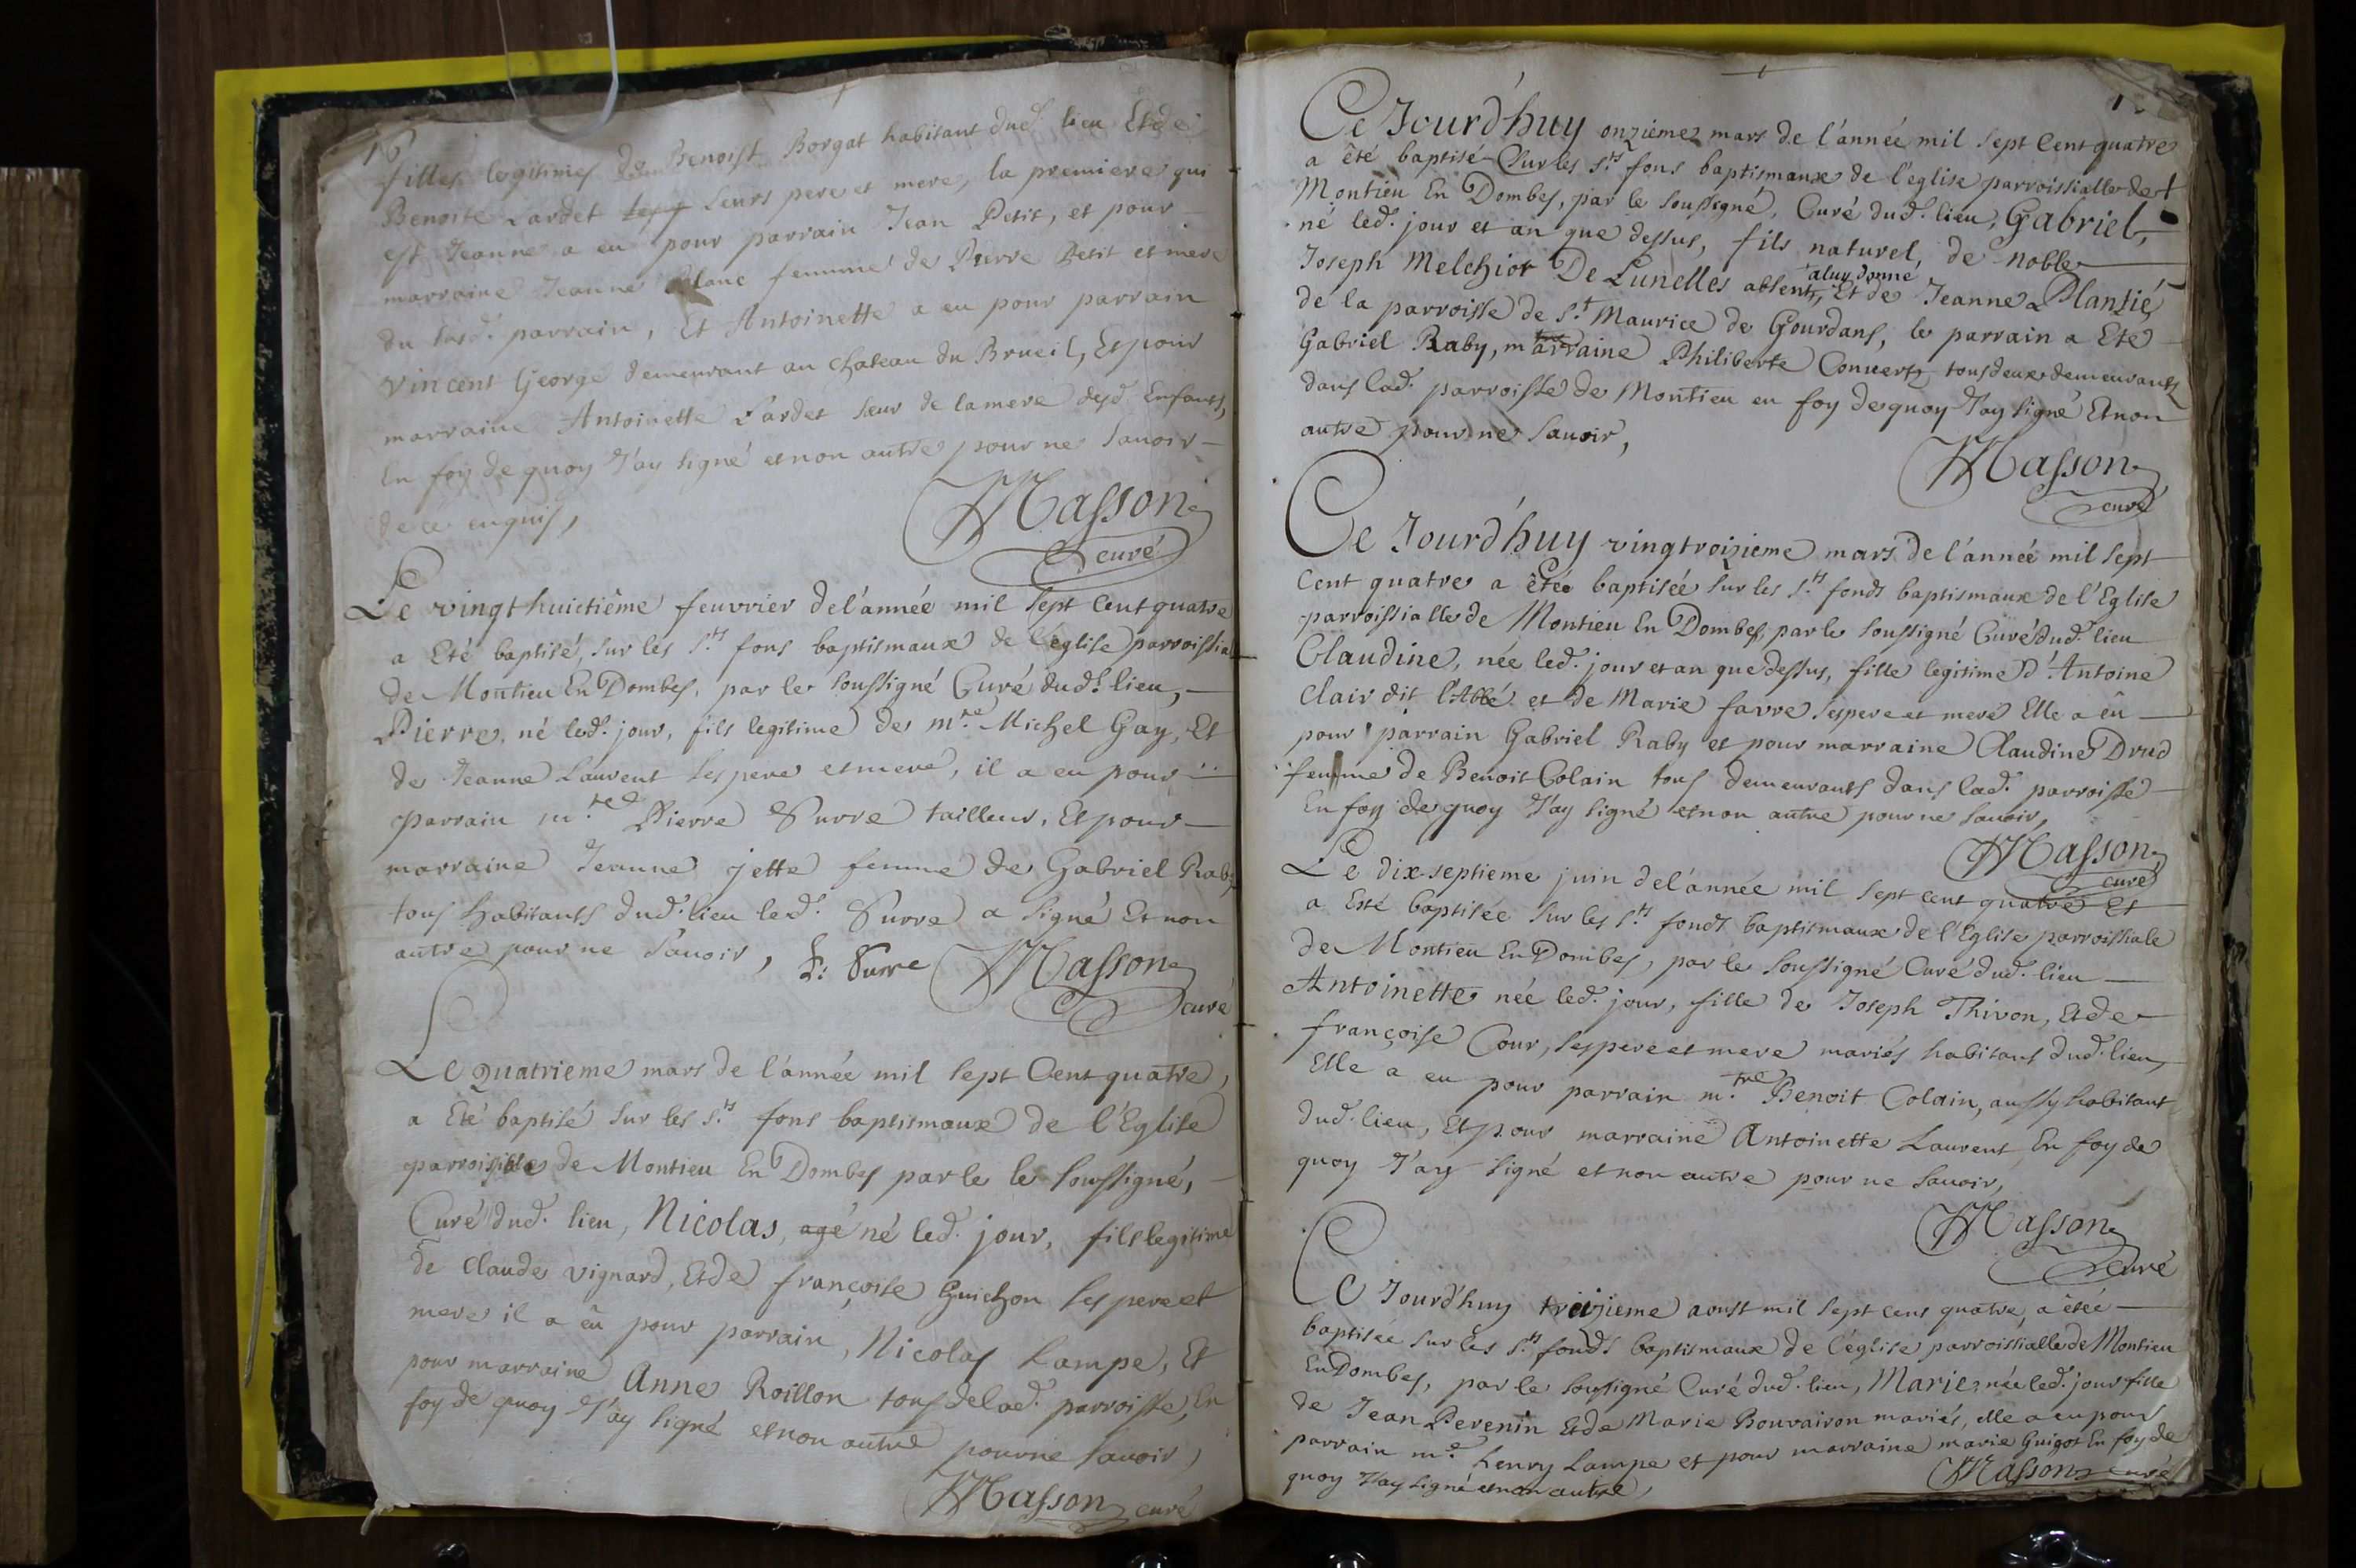 16
filles legitimes de Benoist Borgat habitant dud. lieu Et de
Benoite Lardet leurs pere et mere, la premiere qui
est Jeanne a eu pour parrain Jean Petit, et pour
marraine Jeanne Blanc femme de Pierre Petit et mere
du susd. parrain, Et Antoinette a eu pour parrain
Vincent George demeurant au chateau du Brueil, Et pour
marraine Antoinette Lardet sœur de la mere desd. Enfants,
En foy de quoy J'ay signé et non autre pour ne savoir
de ce enquis,
Masson
curé
Le vingt huictième feuvrier de l'année mil sept Cent quatre
a Eté baptisé, sur les Sts fons baptismaux de l'eglise parroissia
de Montieu En Dombes, par le soussigné Curé dud. lieu,
Pierre, né led. jour, fils legitime de mtre Michel Gay, Et
de Jeanne Laurent ses pere et mere, il a eu pour
parrain mtre Pierre Surre tailleur, Et pour
marraine Jeanne jette femme de Gabriel Raby
tous habitants dud. lieu led. Surre a signé Et non
autre pour ne savoir, P: Surre Masson
curé
Le quatrieme mars de l'année mil sept Cent quatre,
a Eté baptisé sur les Sts fons baptismaux de l'Eglise
parroissialle de Montieu En Dombes par le le soussigné,
Curé dud. lieu, Nicolas, agé né led. jour, fils legitime
de Claude Vignard, Et de françoise Guichon ses pere et
mere il a eû pour parrain, Nicolas Lampe, Et
pour marraine Anne Roillon tous de lad. parroisse, En
foy de quoy J'ay signé et non autre pour ne savoir,
Masson curé
Ce Jourd'huy onzieme mars de l'année mil sept Cent quatre
a êté baptisé Sur les Sts fons baptismaux de l'eglise parroissialle de
Montieu En Dombes, par le soussigné, Curé dud. lieu, Gabriel,
né led. jour et an que dessus, fils naturel, de noble
Joseph Melchior De Lunelles absent, a luy donné Et de Jeanne Plantié
de la parroisse de St Maurice de Gourdans, le parrain a Eté
Gabriel Raby, marraine Philiberte Convert, tous deux demeurants
dans lad. parroisse de Montieu en foy de quoy J'ay signé Et non
autre pour ne savoir,
Masson
curé
Ce Jourd'huy vingtroizieme mars de l'année mil sept
Cent quatre a êtée baptisée sur les Sts fonds baptismaux de l'Eglise
parroissialle de Montieu En Dombes, par le soussigné Curé dud. lieu
Claudine, née led. jour et an que dessus, fille legitime d'Antoine
Clair dit l'Abbé et de Marie favre ses pere et mere Elle a eû
pour parrain Gabriel Raby et pour marraine Claudine Drud
femme de Benoit Colain tous demeurants dans lad. parroisse
En foy de quoy J'ay signé et non autre pour ne savoir,
Masson
curé
Le dix-septieme juin de l'année mil sept cent quatre Et
a Esté baptisée sur les Sts fonds baptismaux de l'Eglise parroissiale
de Montieu En Dombes, par le soussigné Curé dud. lieu
Antoinette née led. jour, fille de Joseph Thivon, Et de
françoise Cour, ses pere et mere mariés habitans dud. lieu,
Elle a eu pour parrain mtre Benoit Colain, aussy habitant
dud. lieu, Et pour marraine Antoinette Laurent, En foy de
quoy J'ay signé et non autre pour ne savoir,
Masson
Curé
Ce Jourd'huy troizieme aoust mil sept cent quatre, a êtée
baptisée sur les Sts fonds baptismaux de l'église parroissialle de Montieu
En Dombes, par le soussigné Curé dud. lieu, Marie, née led. jour fille
de Jean Perenin Et de Marie Bouvairon mariés, elle a eu pour
parrain me henry Lampe et pour marraine marie Guigot En foy de
quoy J'ay signé et non autre, Masson curé